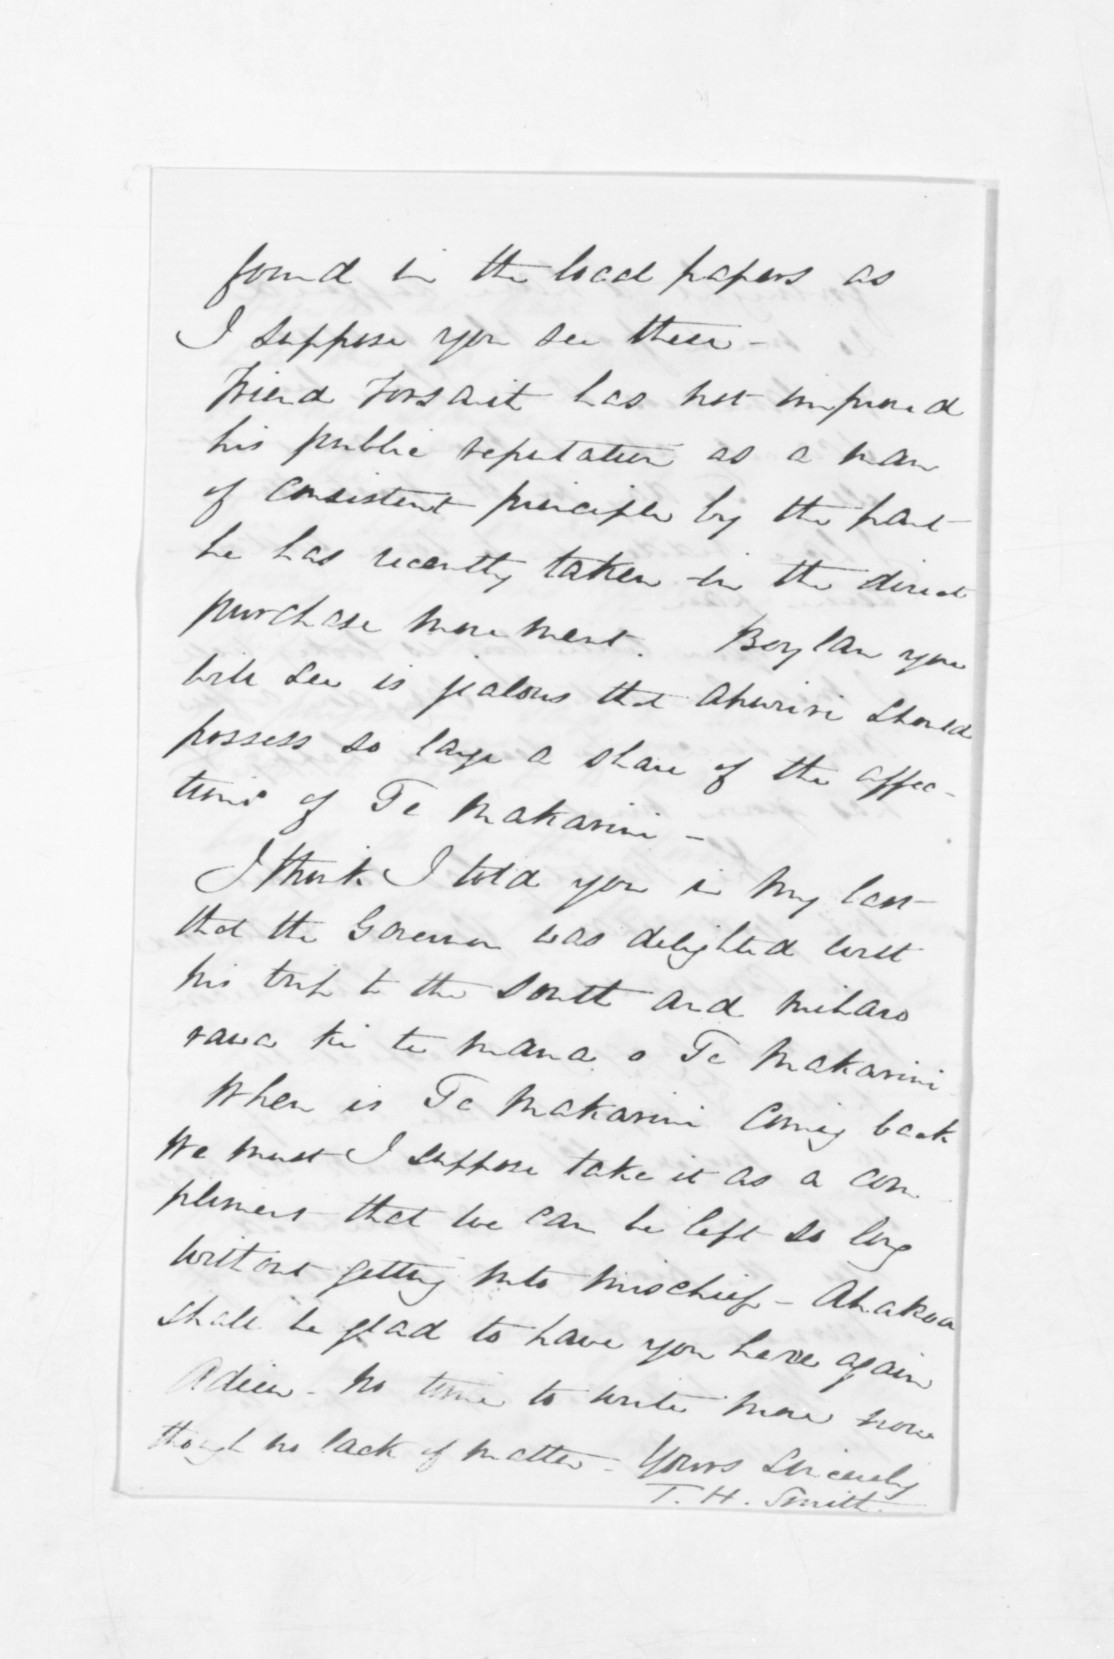 found in the local papers as
I suppose you see these -
Friend Forsait has not improved
his public reputation as a man
of consistent principle by the part
he has recently taken in the direct
purchase movement. Boylan you
will see is jealous that Ahuriri should
possess so large a share of the affec-
tions of Te Makarini -
I think I told you in my last
that the Governor was delighted with
his trip to the South and miharo
rawa ki te mana o Te Makarini
When is Te Makarini coming back
We must I suppose take it as a com
pliment that we can be left so long
without getting into mischief - Ahakoa
shall be glad to have you here again
Adieu - no time to write more now
though no lack of matter - Yours sincerely
T. H. Smith